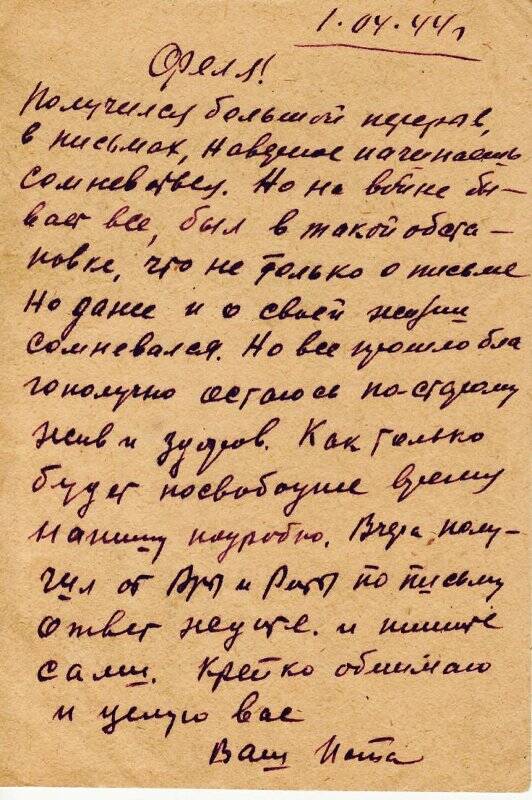 1.04.44 г
Фелл!
Получился большой перерыв,
в письмах, Наверное начинаешь
сомневаться. Но на войне бы-
вает все, был в такой обста-
новке, что не только о письме
Но даже и о своей жизни
сомневался. Но все прошло бла
гополучно остаюсь по-старому
жив и здоров. Как только
будет посвободнее время
Напишу подробно. Вчера полу-
чил от и по письму
Ответ ждите. и пишите
сами. Крепко обнимаю
и целую вас
Ваш